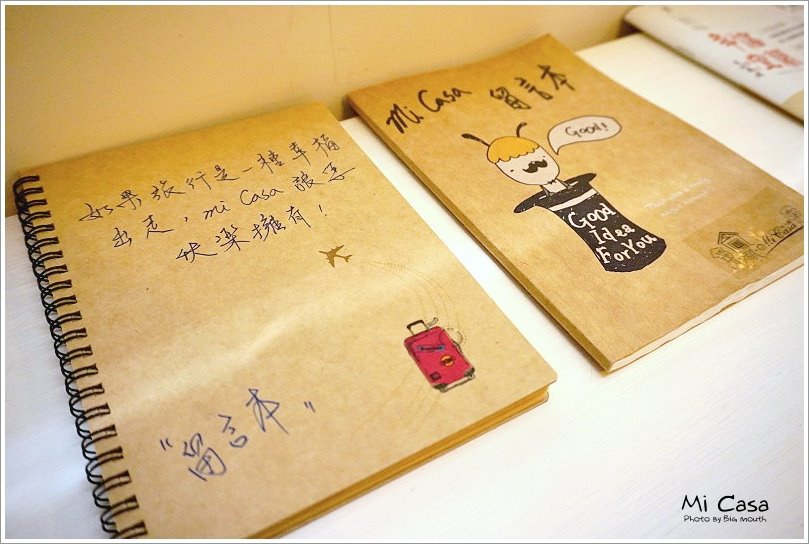 如果旅行是一種幸福
出走，mi Casa 讓
快樂擁有！
"留言本"
Mi Casa 留言本
Good!
Good
Idea
ForYou
Mi Casa
幸福
宜蘭
Mi Casa
Photo by Big mouth